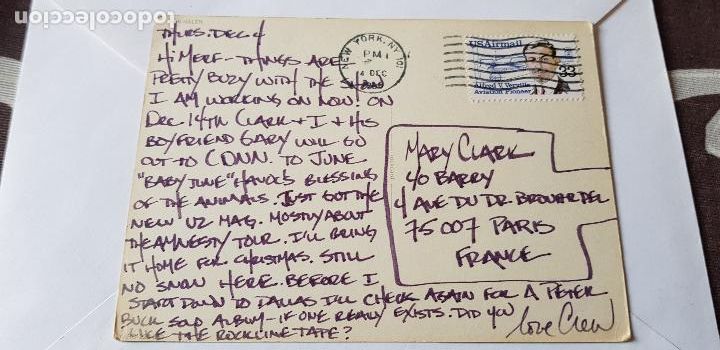 todocoleccion
THURS. DEC 4
NEW YORK, NY
PM
4 DEC
USAirmail
33
Alfred V. Verville
Aviation Pioneer
HI MERF - THINGS ARE
PRETTY BUZY WITH THE
I AM WORKING ON NOW! ON
DEC 14TH CLARK + I + HIS
BOYFRIEND GARY WILL GO
OUT TO CONN. TO JUNE
"BABY JUNE" HAVOC'S BLESSING
OF THE ANIMALS. JUST GOT THE
NEW U2 MAG. MOSTLY ABOUT
THE AMNESTY TOUR. I'LL BRING
IT HOME FOR CHRISTMAS. STILL
NO SNOW HERE. BEFORE I
START DOWN TO DALLAS I'LL CHECK AGAIN FOR A PETER
BUCK SOLO ALBUM - IF ONE REALLY EXISTS. DID YOU
LIKE THE ROCKLINE TAPE?
love
MARY CLARK
C/O BARRY
4 AVE DU DR. BROUARDEL
75007 PARIS
FRANCE